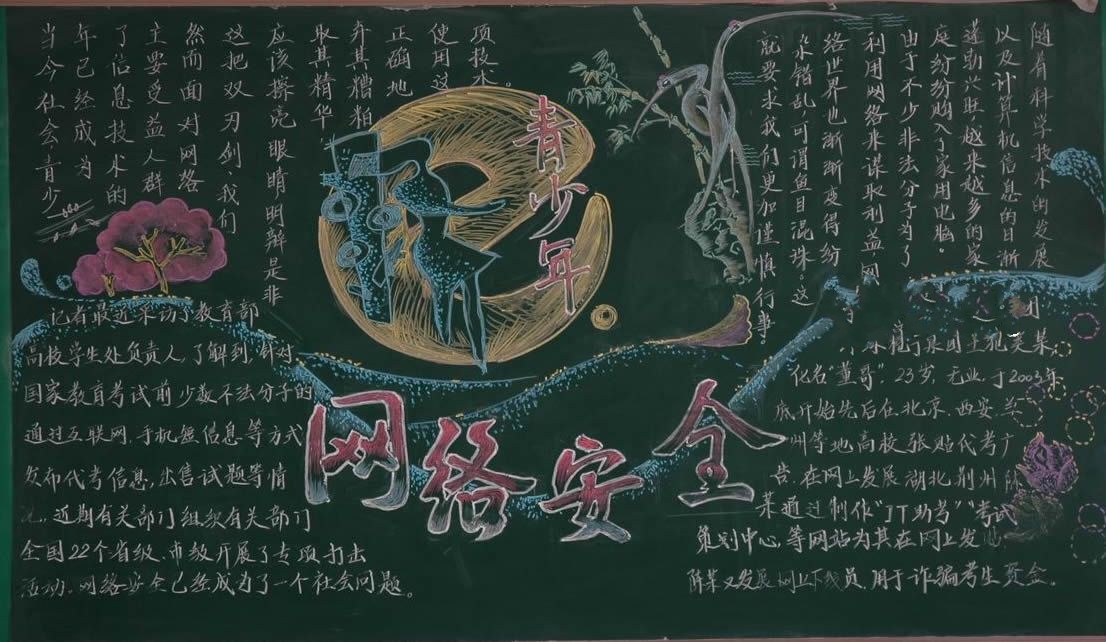 当今社会青少
年已经成为
了信息技术的
主要受益人群
然而面对网络
这把双刃剑,我们
应该擦亮眼睛明辩是非
取其精华
弃其糟粕
正确地
使用这
项技术。
青少年
随着科学技术的发展
以及计算机信息的日渐
蓬勃兴旺,越来越多的家
庭纷纷购入了家用电脑。
由于不少非法分子为了
利用网络来谋取利益,网
络世界也渐渐变得纷
杂错乱,可谓鱼目混珠。这
就要求我们更加谨慎行事。
网络安全
记者最近采访了教育部
高校学生处负责人,了解到,针对
国家教育考试前少数不法分子的
通过互联网,手机短信息等方式
发布代考信息,出售试题等情
近期有关部门组织有关部门
全国22个省级、市级开展了专项打击
活动。网络安全已经成为了一个社会问题。
团主犯吴某,
化名"董哥".23岁,无业,于2003年
底开始先后在北京、西安、兰
州等地高校张贴代考广
告,在网上发展湖北荆州陈
某通过制作"IT助考""考试
策划中心,等网站为其在网上发
陈某又发展网上下线员,用于诈骗考生资金。